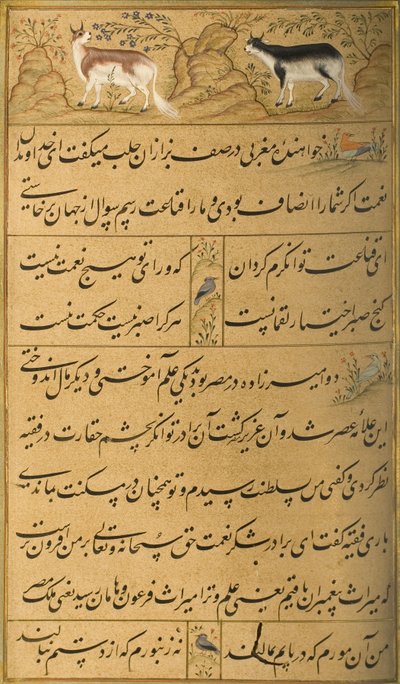 خواهنده مغربی در صف بزازان حلب میگفت ای خداوندان
نعمت اگر شما را انصاف بودی و ما را قناعت رسم سوال از جهان برخاستی
ای قناعت توانگرم گردان که ورای تو هیچ نعمت نیست
کنج صبر اختیار لقمانست هر کرا صبر نیست حکمت نیست
دو امیرزاده در مصر بودند یکی علم آموختی و دیگر مال اندوختی
این علامه عصر شد و آن عزیز گشت آن برادر توانگر بچشم حقارت در فقیه
نظر کردی و گفتی من بسلطنت رسیدم و تو همچنان در مسکنت بماندی
باری فقیه گفت ای برادر شکر نعمت حق سبحانه و تعالی بر من افزون تر است
که میراث پیغمبران یافتم یعنی علم و ترا میراث فرعون و هامان رسید یعنی ملک مصر
من آن مورم که در پایم بمالند نه زنبورم که از دستم بنالند